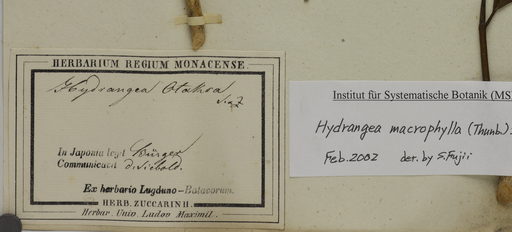 HERBARIUM REGIUM MONACENSE.
Hydrangea Otaksa
In Japonia legit Bürger
Communicavit d. Siebold.
Ex herbario Lugduno-Batavorum.
HERB. ZUCCARINII.
Herbar. Univ. Ladov Maximil.
Institut für Systematische Botanik (MS
Hydrangea macrophylla (Thunb.).
Feb. 2002 det. by S. Fujii